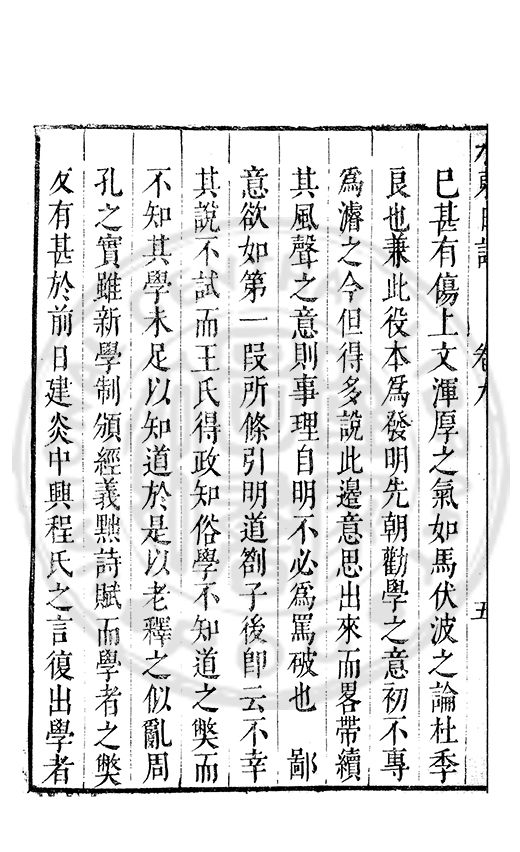 水東日記 卷九 五
已甚有傷上文渾厚之氣如馬伏波之論杜季
良也兼此役本爲發明先朝勸學之意初不專
爲濬之今但得多說此邊意思出來而畧帶續
其風聲之意則事理自明不必爲罵破也 鄙
意欲如第一段所條引明道劄子後卽云不幸
其說不試而王氏得政知俗學不知道之獘而
不知其學未足以知道於是以老釋之似亂周
孔之實雖新學制頒經義黜詩賦而學者之獘
反有甚於前日建炎中興程氏之言復出學者